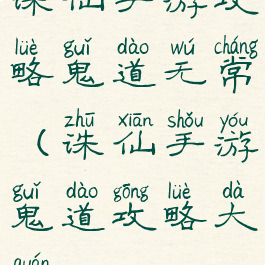 诛仙手游攻
lüè guǐ dào wú cháng
略鬼道无常
zhū xiān shǒu yóu
（诛仙手游
guǐ dào gōng lüè dà
鬼道攻略大
quán